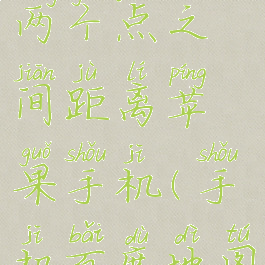 两个点之
jiān jù lí píng
间距离苹
guǒ shǒu jī shǒu
果手机(手
jī bǎi dù dì tú
机百度地图